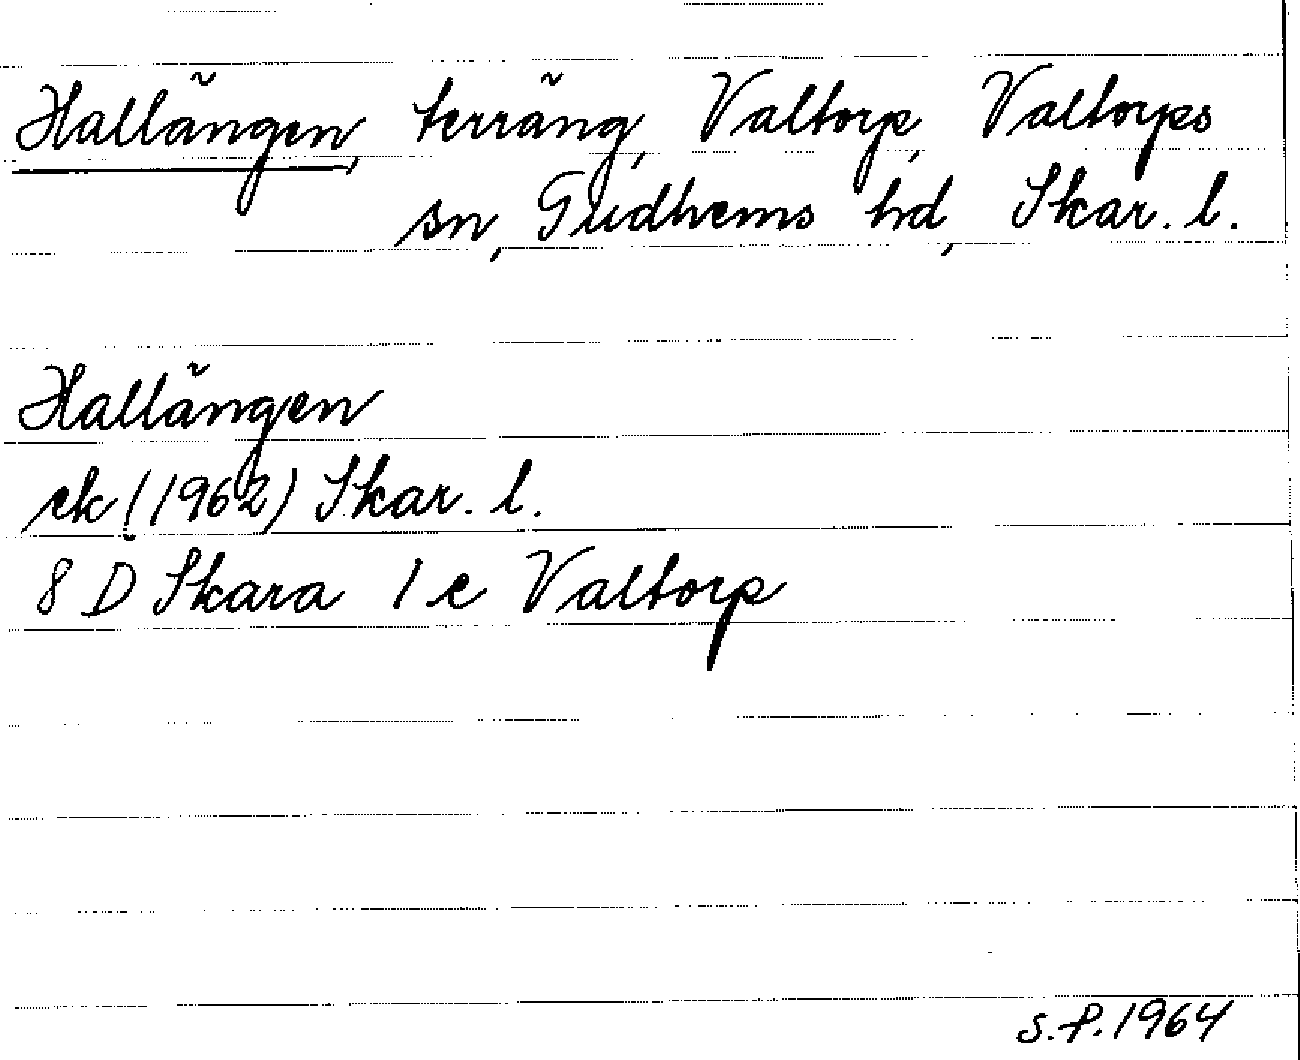 Hallängen, terräng, Valtorp, Valtorps
sn, Gudhems hd, Skar. l.
Hallängen
ek (1962) Skar. l.
8 D Skara 1 e Valtorp
S.F. 1964